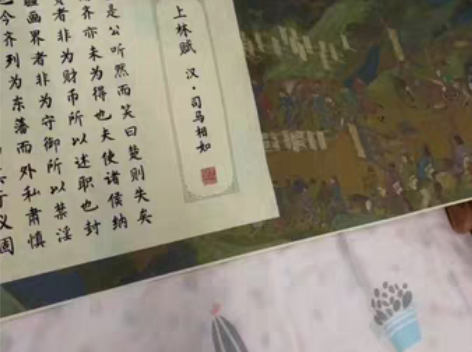 上林赋 汉·司马相如
是公听然而笑曰楚则失矣
齐亦未为得也夫使诸侯纳
者非为财币所以述职也封
疆画界者非为守御所以禁淫
今齐列为东藩而外私肃慎
义固